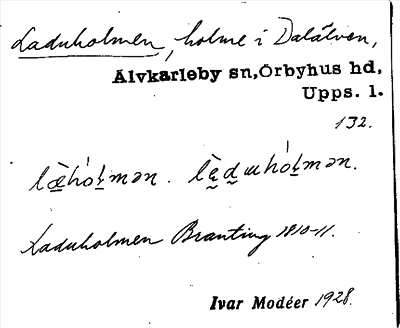 Laduholmen, holme i Dalälven,
Älvkarleby sn, Örbyhus hd,
Upps. l.
132.
læ̀hóḷmən. læ̀d̥ɯhóḷmən.
Laduholmen Branting 1810-11.
Ivar Modéer 1928.